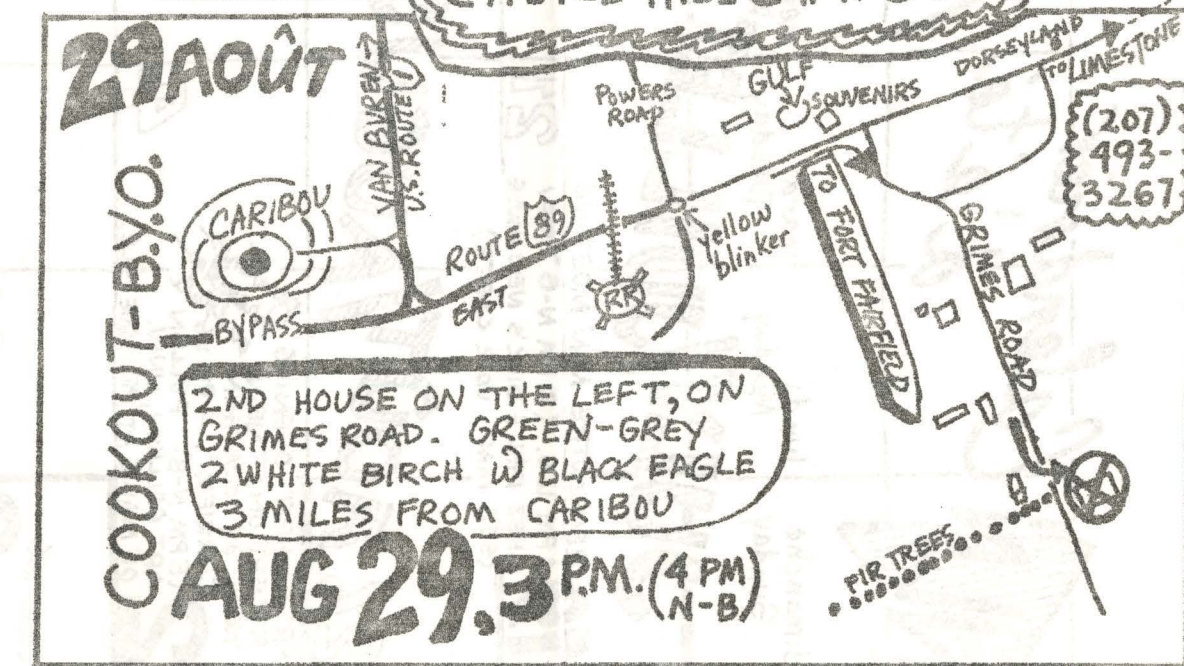 29 AOÛT
COOKOUT-B.Y.O.
VAN BUREN→
U.S. ROUTE 1
CARIBOU
BYPASS
ROUTE 89
EAST
RR
POWERS
ROAD
yellow
blinker
GULF
SOUVENIRS
DORSEYLAND
TO LIMESTONE
(207)
493-
3267
TO FORT FAIRFIELD
GRIMES ROAD
2ND HOUSE ON THE LEFT, ON
GRIMES ROAD. GREEN-GREY
2 WHITE BIRCH W BLACK EAGLE
3 MILES FROM CARIBOU
AUG 29, 3 P.M. (4 PM
N-B)
FIR TREES